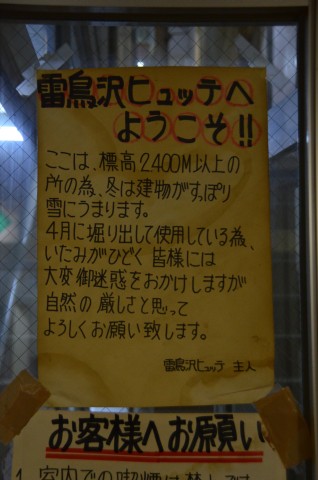 雷鳥沢ヒュッテへ
ようこそ!!
ここは、標高2,400M以上の
所の為、冬は建物がすっぽり
雪にうまります。
4月に堀り出して使用している為、
いたみがひどく 皆様には
大変御迷惑をおかけしますが
自然の厳しさと思って
よろしくお願い致します。
雷鳥沢ヒュッテ 主人
お客様へお願い
1. 室内での喫煙は禁